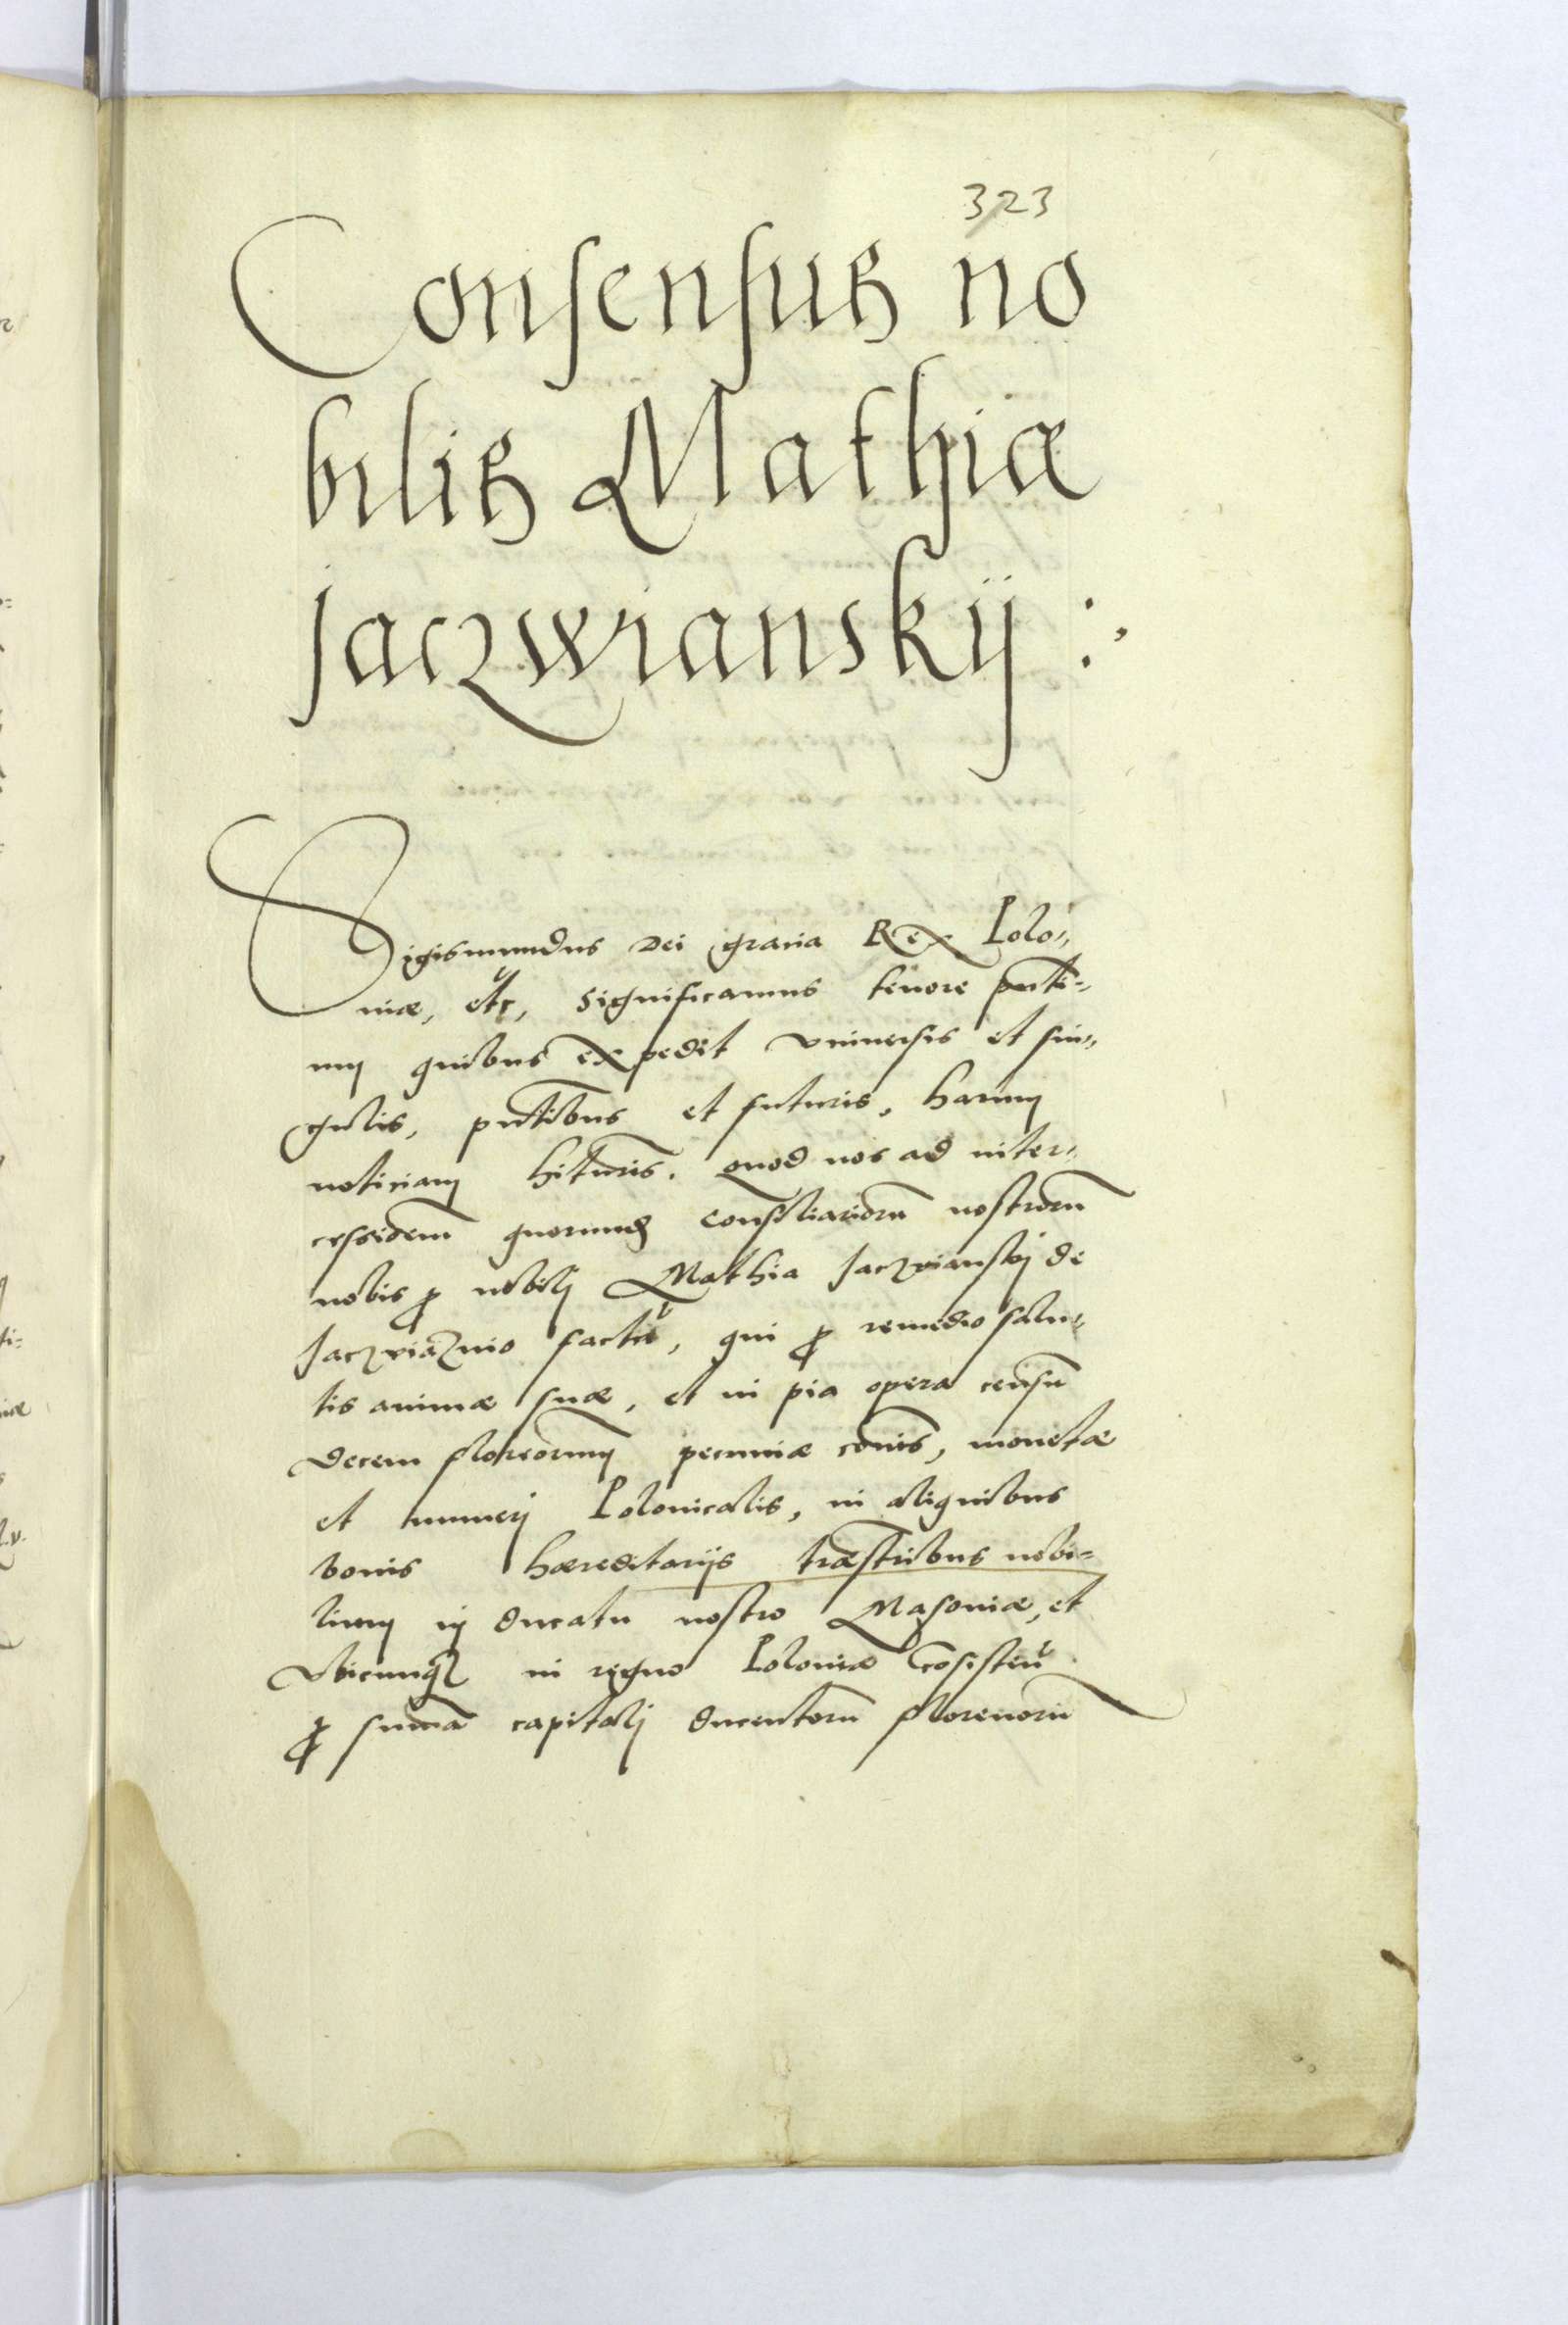 323
Consensus no
bilis Mathiæ
Jaczwianskij :,
Sigismundus Dei gracia Rex Polo„
niæ, etc, Significamus tenore pnti=
um quibus expedit vniuersis et sin„
gulis, pntibus et futuris, harum
noticiam hituris. Quod nos ad inter„
cessionem quorumd consiliariorū nostrorū
nobis p nobilj Mathia Jaczwianskj de
factū, qui p remedio salu„
tis animæ suæ, et in pia opera censū
decem florenorum pecuniæ cōīs, monetæ
et numerj Polonicalis, in aliquibus
bonis hæreditarijs træstribus nobi=
lium in Ducatu nostro Masouiæ, et
vbicunq in regno Poloniæ cōsisteñ.
p suma capitalj ducentorū florenorū